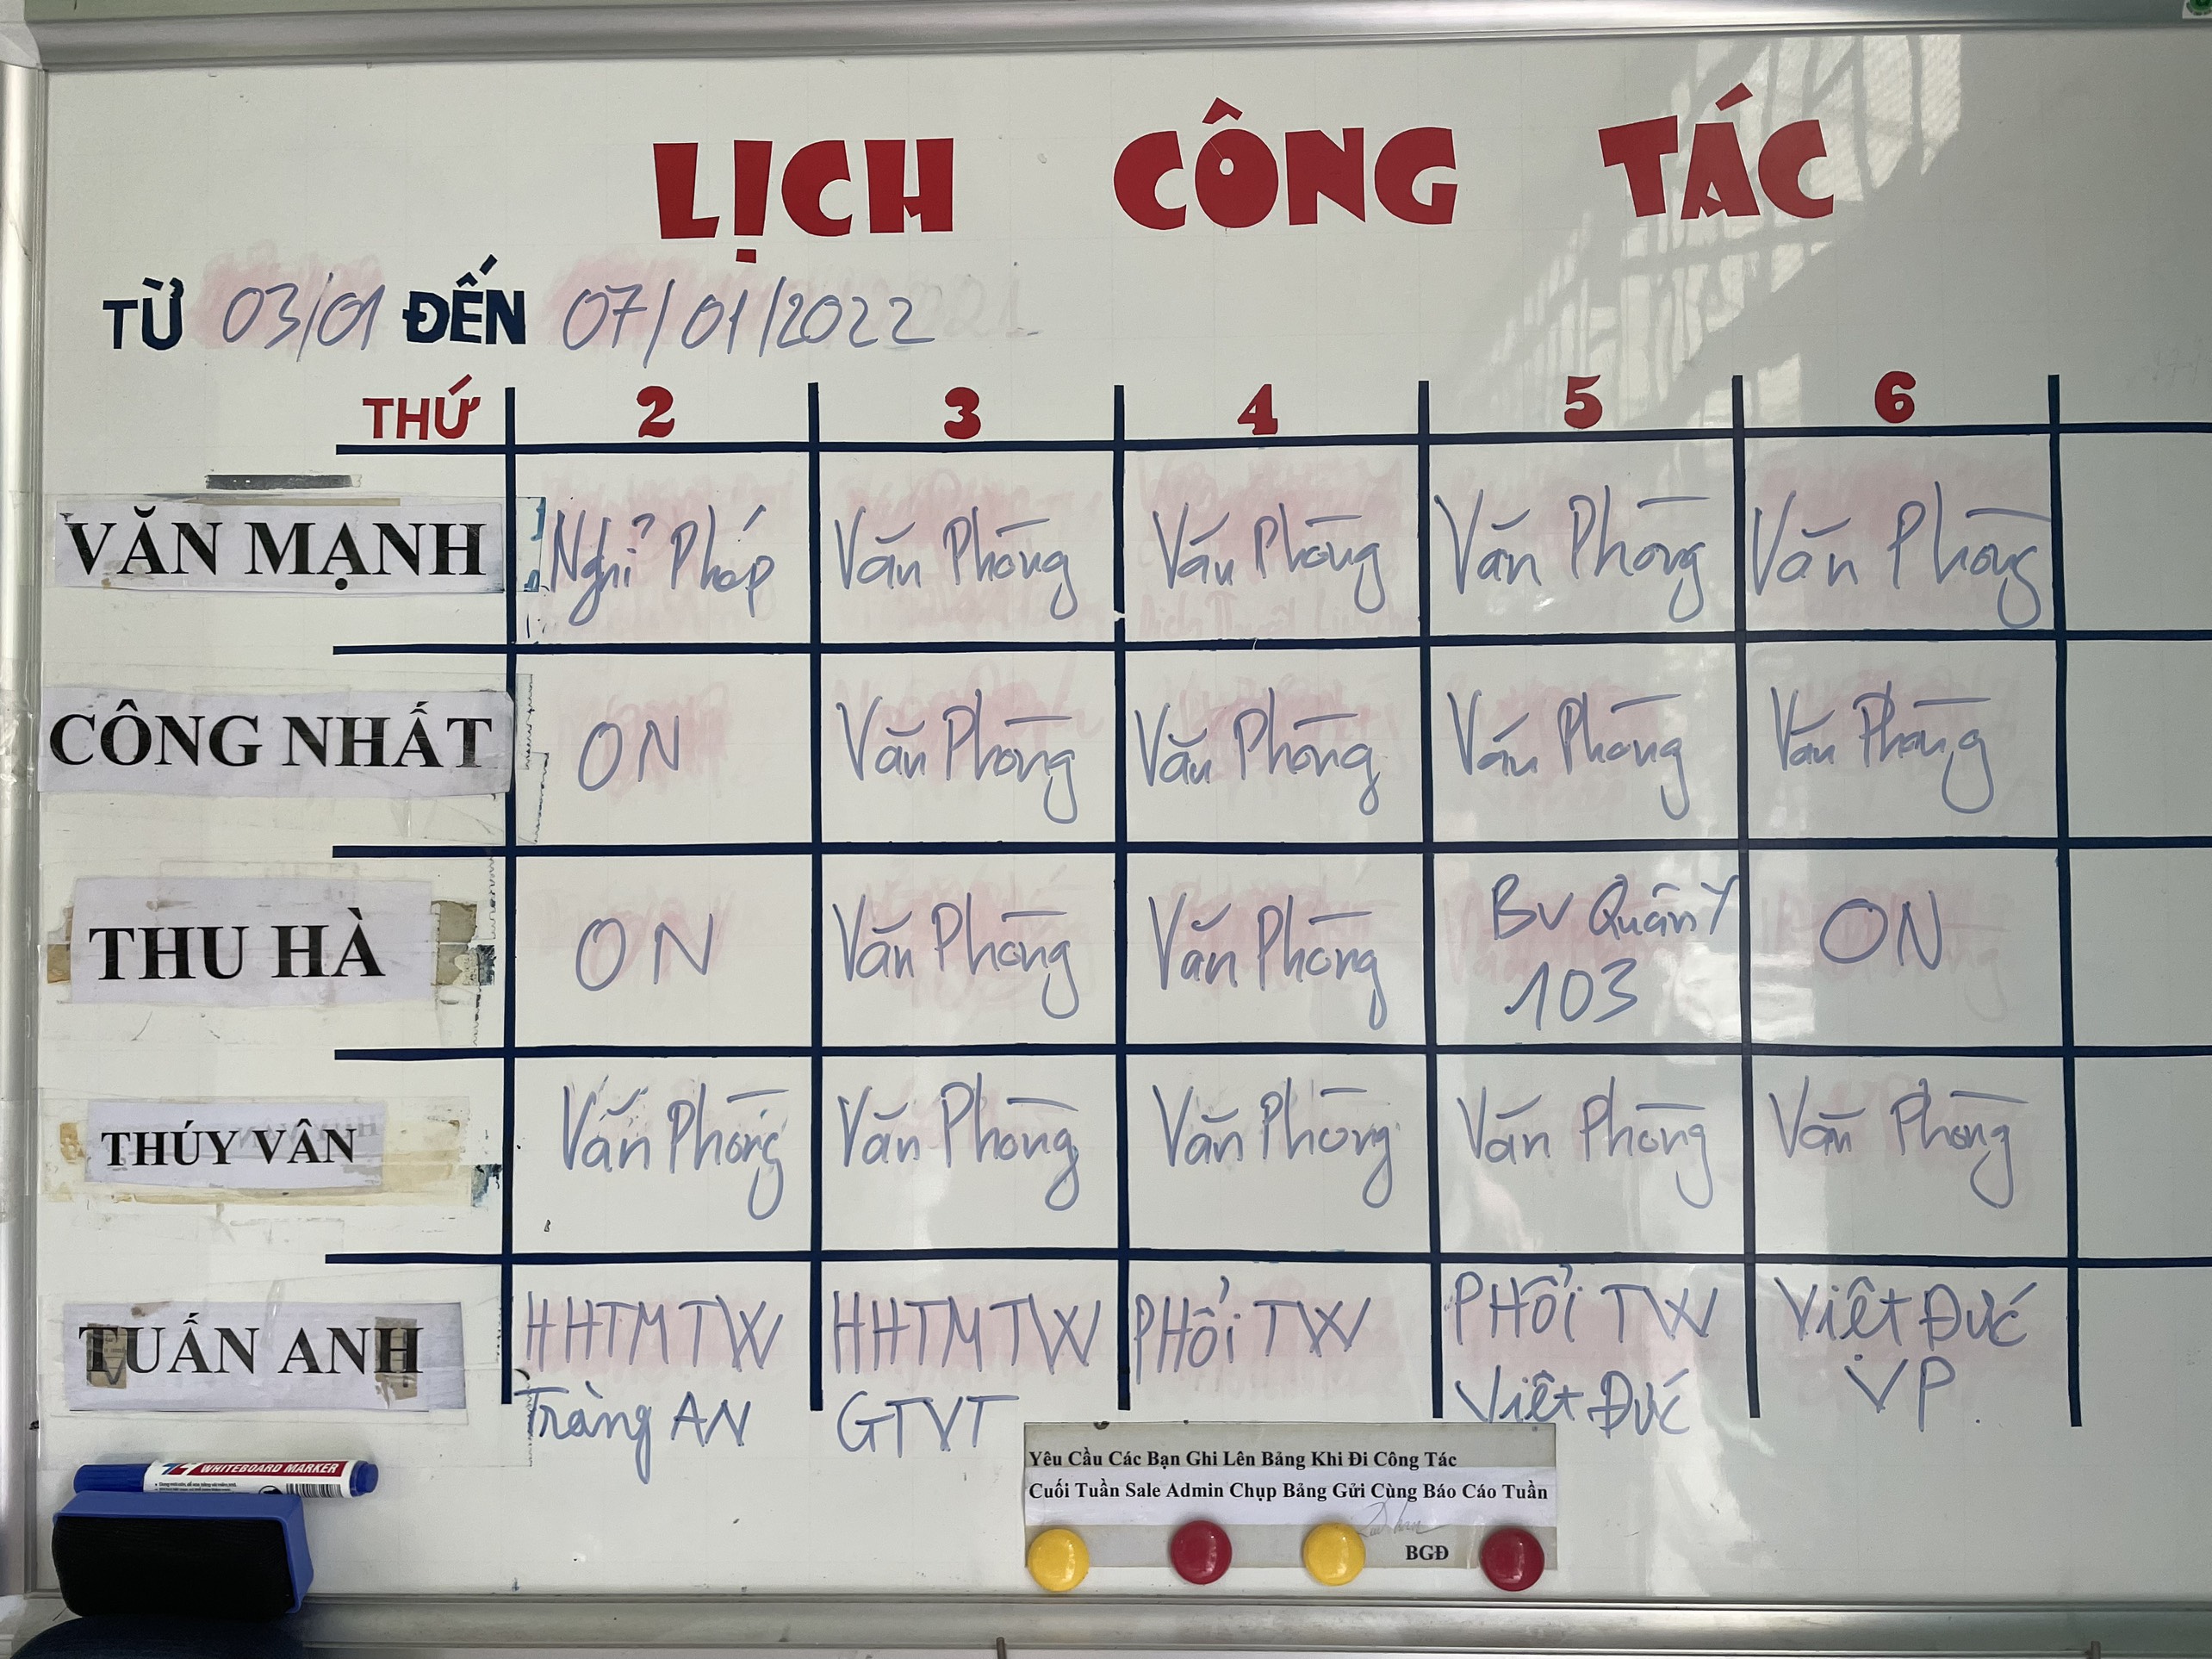 LỊCH CÔNG TÁC
TỪ 03/01 ĐẾN 07/01/2022
THỨ 2 3 4 5 6
VĂN MẠNH Nghỉ Phép Văn Phòng Văn Phòng Văn Phòng Văn Phòng
CÔNG NHẤT ON Văn Phòng Văn Phòng Văn Phòng Văn Phòng
THU HÀ ON Văn Phòng Văn Phòng BV Quân Y ON
103
THÚY VÂN Văn Phòng Văn Phòng Văn Phòng Văn Phòng Văn Phòng
TUẤN ANH HHTMTW HHTMTW PHổi TW PHổi TW Việt Đức
Tràng AN GTVT Việt Đức VP
Yêu Cầu Các Bạn Ghi Lên Bảng Khi Đi Công Tác
Cuối Tuần Sale Admin Chụp Bảng Gửi Cùng Báo Cáo Tuần
BGĐ
WHITEBOARD MARKER